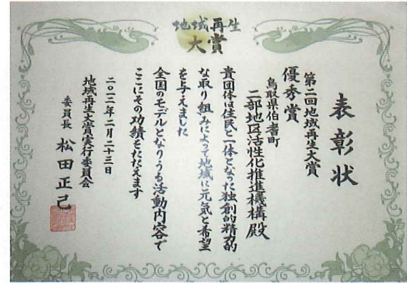 地域再生
大賞
表彰状
第二回地域再生大賞
優秀賞
鳥取県伯耆町
二部地区活性化推進機構殿
貴団体は住民と一体となった独創的精力的
な取り組みによって地域に元気と希望
を与えました
全国のモデルとなりうる活動内容で
ここにその功績をたたえます
二〇一二年二月二十三日
地域再生大賞実行委員会
委員長 松田正己